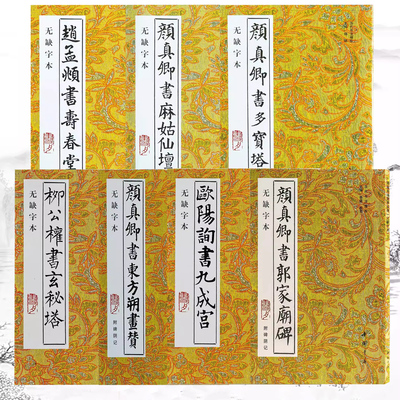 趙孟頫書壽春堂
无缺字本
顔真卿書麻姑仙壇
无缺字本
顔真卿書多寶塔
无缺字本
柳公權書玄秘塔
无缺字本
顔真卿書東方朔畫贊
无缺字本
附碑額記
歐陽詢書九成宫
无缺字本
顔真卿書郭家廟碑
无缺字本